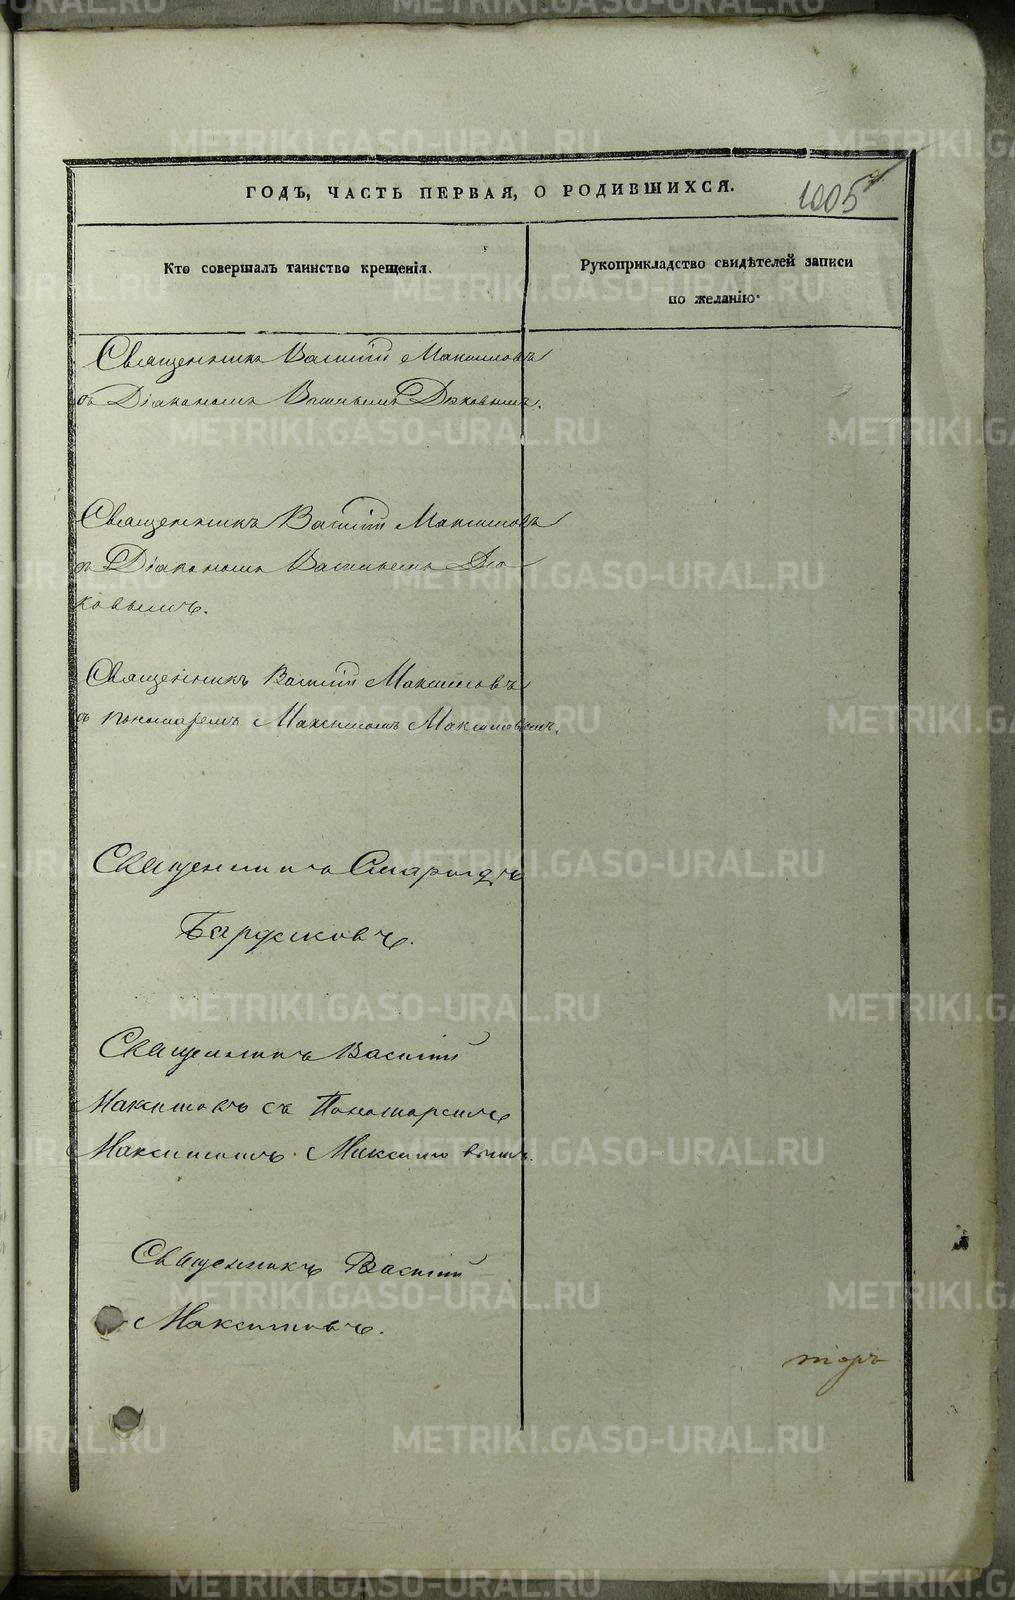 ГОДЪ, ЧАСТЬ ПЕРВАЯ, О РОДИВШИХСЯ.
1005
Кто совершалъ таинство крещенія.
Рукоприкладство свидѣтелей записи
по желанію.
Священникъ Василій Максимовъ
съ Діакономъ Васильемъ Дьяковымъ.
Священникъ Василій Максимовъ
съ Діакономъ Васильемъ Дья-
ковымъ.
Священникъ Василій Максимовъ
съ пономаремъ Максимомъ Максимовымъ.
Священникъ Смарагдъ
Священникъ Василій
Максимовъ съ Пономаремъ
Максимомъ Максимовымъ.
Священникъ Василій
Максимовъ.
METRIKI.GASO-URAL.RU